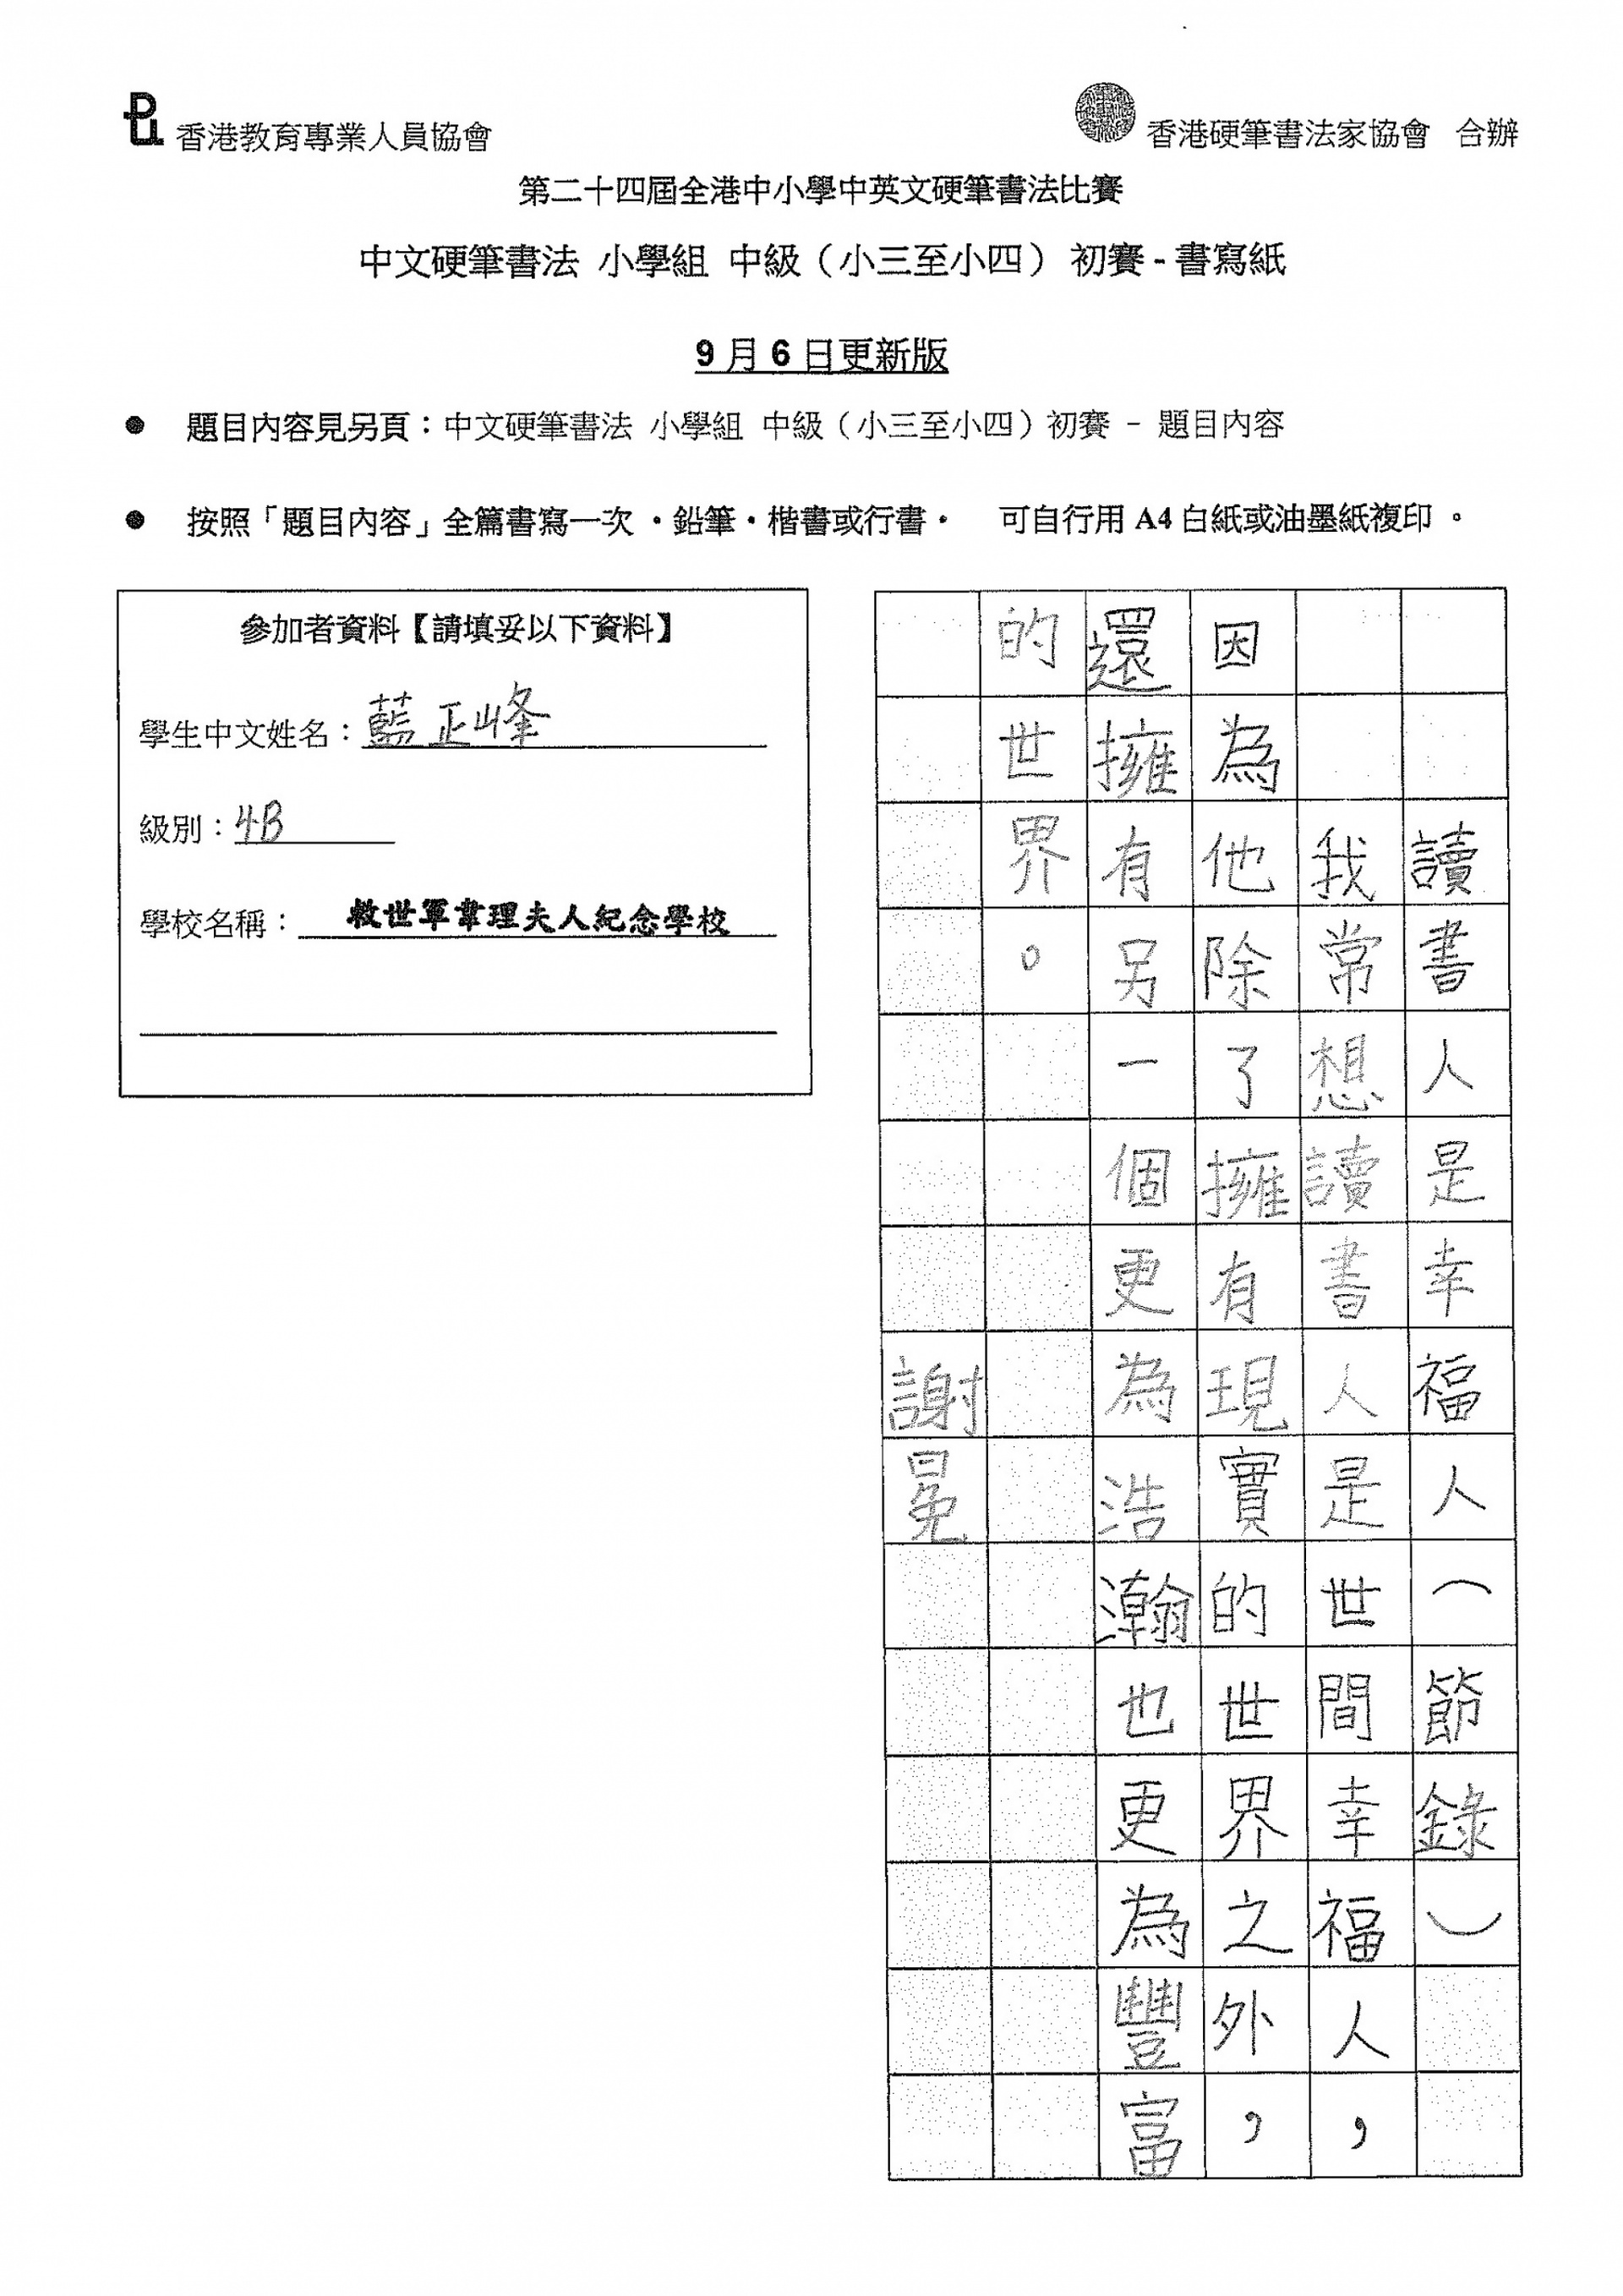 香港教育專業人員協會
香港硬筆書法家協會 合辦
第二十四屆全港中小學中英文硬筆書法比賽
中文硬筆書法 小學組 中級（小三至小四） 初賽-書寫紙
9 月 6 日更新版
● 題目內容見另頁：中文硬筆書法 小學組 中級（小三至小四）初賽 － 題目內容
● 按照「題目內容」全篇書寫一次・鉛筆・楷書或行書・ 可自行用 A4 白紙或油墨紙複印。
參加者資料【請填妥以下資料】
學生中文姓名：藍正峰
級別：4B
學校名稱：救世軍韋理夫人紀念學校
讀書人是幸福人（節錄）
我常想讀書人是世間幸福人，
因為他除了擁有現實的世界之外，
還擁有另一個更為浩瀚也更為豐富
的世界。
謝冕